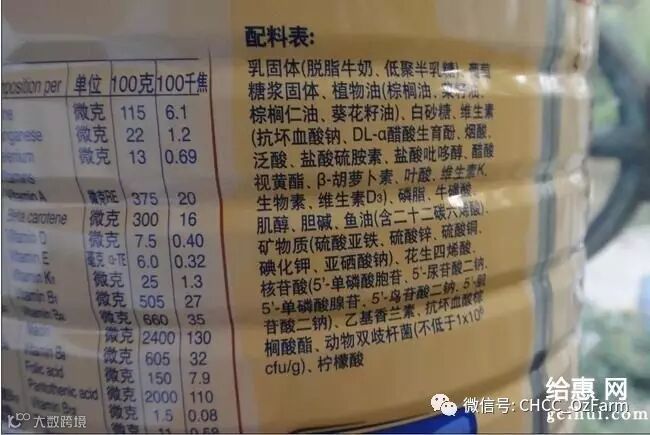 配料表:
乳固体(脱脂牛奶、低聚半乳糖)、葡萄
糖浆固体、植物油(棕榈油、菜籽油、
棕榈仁油、葵花籽油)、白砂糖、维生素
(抗坏血酸钠、DL-α醋酸生育酚、烟酸、
泛酸、盐酸硫胺素、盐酸吡哆醇、醋酸
视黄酯、β-胡萝卜素、叶酸、维生素K、
生物素、维生素D₃)、磷脂、牛磺酸、
肌醇、胆碱、鱼油(含二十二碳六烯酸)、
矿物质(硫酸亚铁、硫酸锌、硫酸铜、
碘化钾、亚硒酸钠)、花生四烯酸、
核苷酸(5'-单磷酸胞苷、5'-尿苷酸二钠、
5'-单磷酸腺苷、5'-鸟苷酸二钠、5'-
苷酸二钠)、乙基香兰素、抗坏血酸棕
榈酸酯、动物双歧杆菌(不低于1x10⁶
cfu/g)、柠檬酸
position per 单位 100克 100千焦
ne 微克 115 6.1
nganese 微克 22 1.2
lenium 微克 13 0.69
tamins
Vitamin A 微克RE 375 20
Beta carotene 微克 300 16
Vitamin D 微克 7.5 0.40
Vitamin E 毫克 α-TE 6.0 0.32
Vitamin K₁ 微克 25 1.3
Vitamin B₁ 微克 505 27
Vitamin B₂ 微克 660 35
Niacin 微克 2400 130
Vitamin B₆ 微克 605 32
Folic acid 微克 150 7.9
Pantothenic acid 微克 2000 110
Vitamin B₁₂ 微克 1.5 0.08
微克 11 0.58
大数跨境
微信号: CHCC_OzFarm
给惠 网
geihui.com